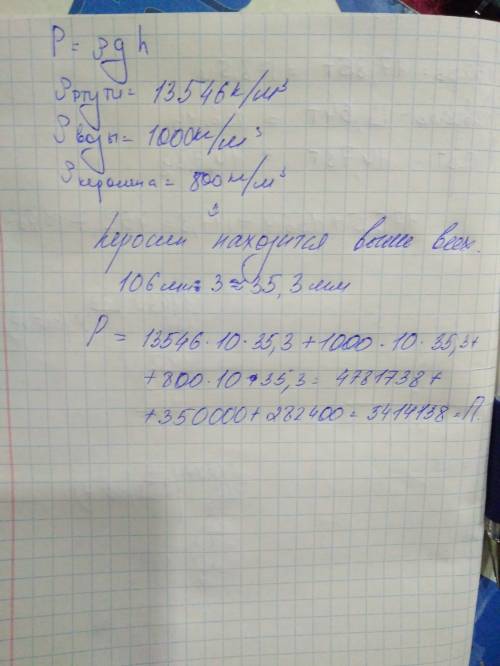 P = ρgh
ρртути = 13546кг/м³
ρводы = 1000кг/м³
ρкеросина = 800кг/м³
керосин находится выше всех.
106мм : 3 ≈ 35,3мм
P = 13546·10·35,3 + 1000·10·35,3+
+800·10·35,3 = 4781738+
+350000+282400 = 5414138 = П.